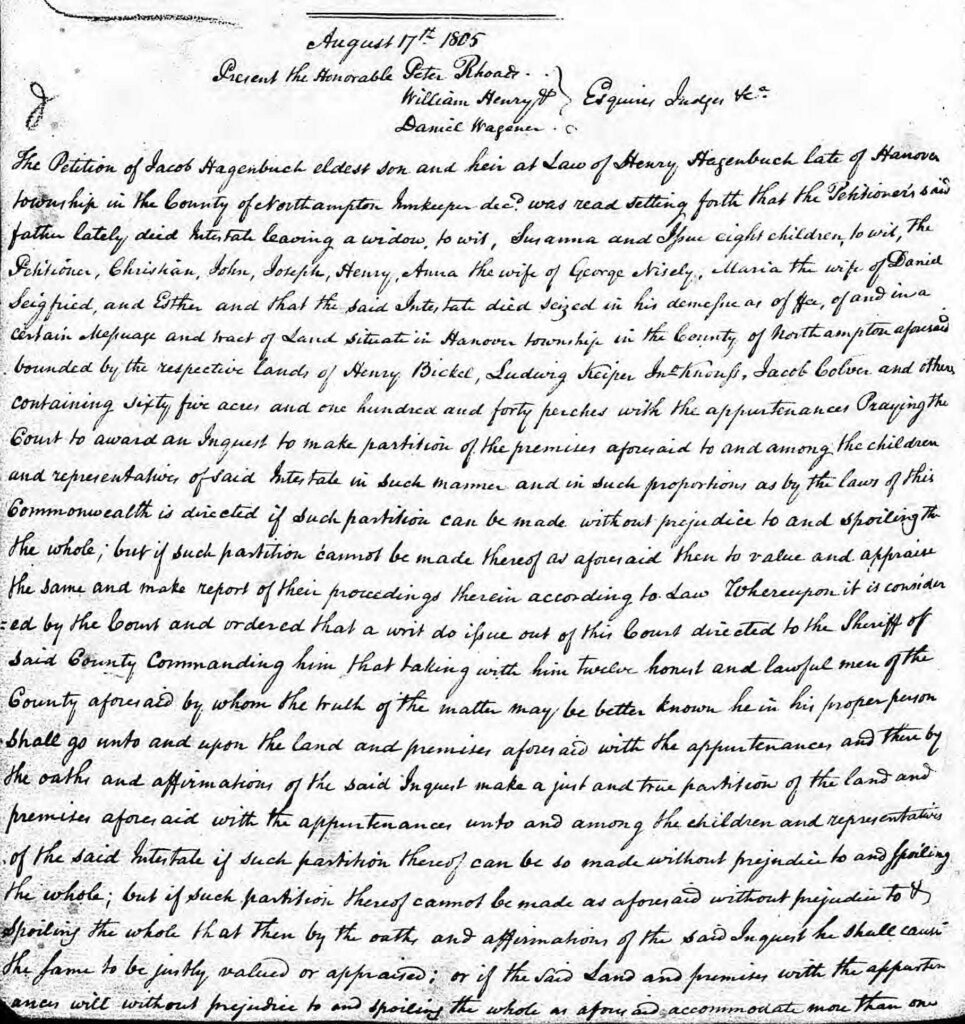 August 17th 1805
Present the Honorable Peter Rhoads
William Henry & } Esquires Judges &ca
Daniel Wagener
The Petition of Jacob Hagenbuch eldest son and heir at Law of Henry Hagenbuch late of Hanover
township in the County of Northampton Innkeeper decd. was read setting forth that the Petitioner's said
father lately died Intestate leaving a widow, to wit, Susanna and Issue eight children, to wit, the
Petitioner, Christian, John, Joseph, Henry, Anna the wife of George Nisely, Maria the wife of Daniel
Seigfried, and Esther and that the said Intestate died seized in his demesne as of fee, of and in a
certain Messuage and tract of Land situate in Hanover township in the County of Northampton aforesaid
bounded by the respective lands of Henry Bickel, Ludwig Keiper Jno. Knouss, Jacob Colver and others
containing sixty five acres and one hundred and forty perches with the appurtenances Praying the
Court to award an Inquest to make partition of the premises aforesaid to and among the children
and representatives of said Intestate in such manner and in such proportions as by the laws of this
Commonwealth is directed if such partition can be made without prejudice to and spoiling th
the whole; but if such partition cannot be made thereof as aforesaid then to value and appraise
the same and make report of their proceedings therein according to Law Whereupon it is consider
=ed by the Court and ordered that a writ do issue out of this Court directed to the Sheriff of
said County Commanding him that taking with him twelve honest and lawful men of the
County aforesaid by whom the truth of the matter may be better known he in his proper person
shall go unto and upon the land and premises aforesaid with the appurtenances and there by
the oaths and affirmations of the said Inquest make a just and true partition of the land and
premises aforesaid with the appurtenances unto and among the children and representatives
of the said Intestate if such partition thereof can be so made without prejudice to and spoiling
the whole; but if such partition thereof cannot be made as aforesaid without prejudice to &
spoiling the whole that then by the oaths and affirmations of the said Inquest he shall cause
the same to be justly valued or appraised; or if the said Land and premises with the appurten
ances will without prejudice to and spoiling the whole as aforesaid accommodate more than one